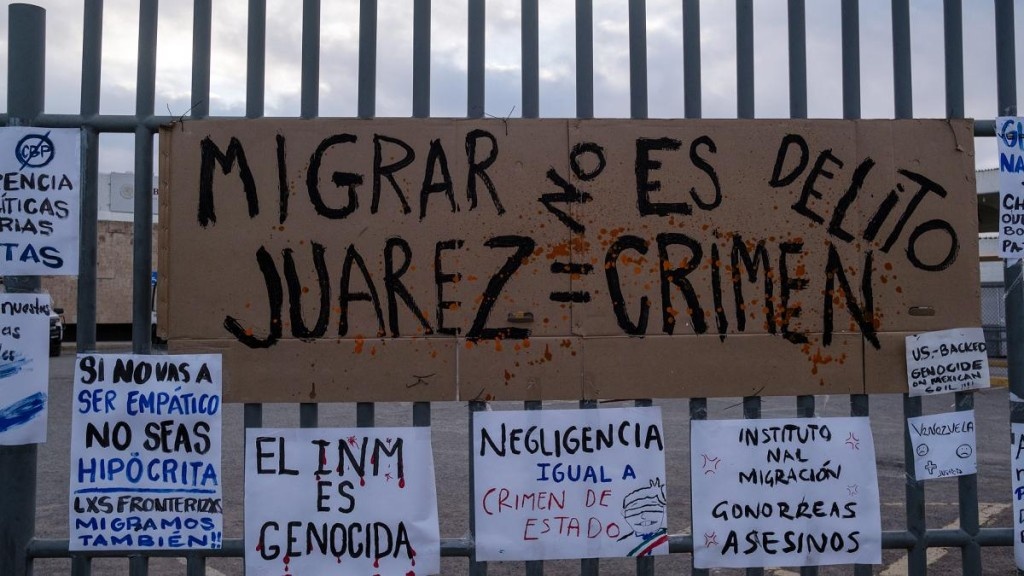 MIGRAR NO ES DELITO
JUAREZ = CRIMEN
CBP
TAS
SI NO VAS A
SER EMPÁTICO
NO SEAS
HIPÓCRITA
LXS FRONTERIZXS
MIGRAMOS
TAMBIÉN!!
EL INM
ES
GENOCIDA
NEGLIGENCIA
IGUAL A
CRIMEN DE
ESTADO
INSTITUTO
NAL
MIGRACIÓN
GONORREAS
ASESINOS
US-BACKED
GENOCIDE
ON MEXICAN
SOIL !!!!
VENEZUELA